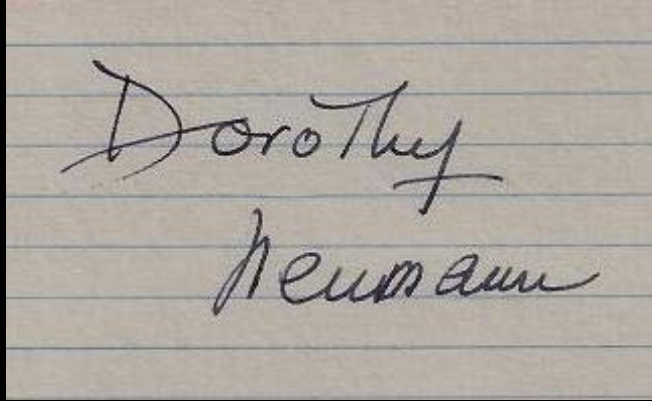 Dorothy
Neumann